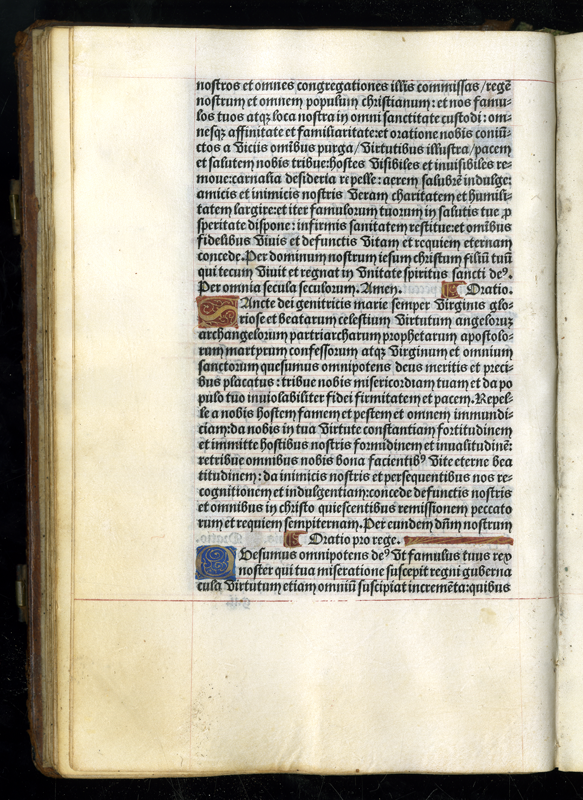 nostros et omnes congregationes illis commissas / regē
nostrum et omnem populum christianum: et nos famu-
los tuos atqꝫ loca nostra in omni sanctitate custodi: om-
nesqꝫ affinitate et familiaritate: et oratione nobis coniū-
ctos a viciis omībus purga / virtutibus illustra / pacem
et salutem nobis tribue: hostes visibiles et inuisibiles re-
moue: carnalia desideria repelle: aerem salubrē indulge:
amicis et inimicis nostris veram charitatem et humili-
tatem largire: et iter famulorum tuorum in salutis tue ꝓ
speritate dispone: infirmis sanitatem restitue: et omībus
fidelibus viuis et defunctis vitam et requiem eternam
concede. Per dominum nostrum iesum christum filiū tuū
qui tecum viuit et regnat in vnitate spiritus sancti deꝰ.
Per omnia secula seculorum. Amen. Oratio.
SAncte dei genitricis marie semper virginis glo-
riose et beatarum celestium virtutum angelorum
archangelorum partriarcharum prophetarum apostolo-
rum martyrum confessorum atqꝫ virginum et omnium
sanctorum quesumus omnipotens deus meritis et preci-
bus placatus: tribue nobis misericordiam tuam et da po
pulo tuo inuiolabiliter fidei firmitatem et pacem. Repel-
le a nobis hostem famem et pestem et omnem immundi-
ciam: da nobis in tua virtute constantiam fortitudinem
et immitte hostibus nostris formidinem et inualitudinē:
retribue omnibus nobis bona facientibꝰ vite eterne bea
titudinem: da inimicis nostris et persequentibus nos re-
cognitionem et indulgentiam: concede defunctis nostris
et omnibus in christo quiescentibus remissionem peccato
rum et requiem sempiternam. Per eundem dn̄m nostrum
Oratio pro rege.
QVesumus omnipotens deꝰ vt famulus tuus rex
noster qui tua miseratione suscepit regni guberna
cula virtutum etiam omniū suscipiat incremēta: quibus